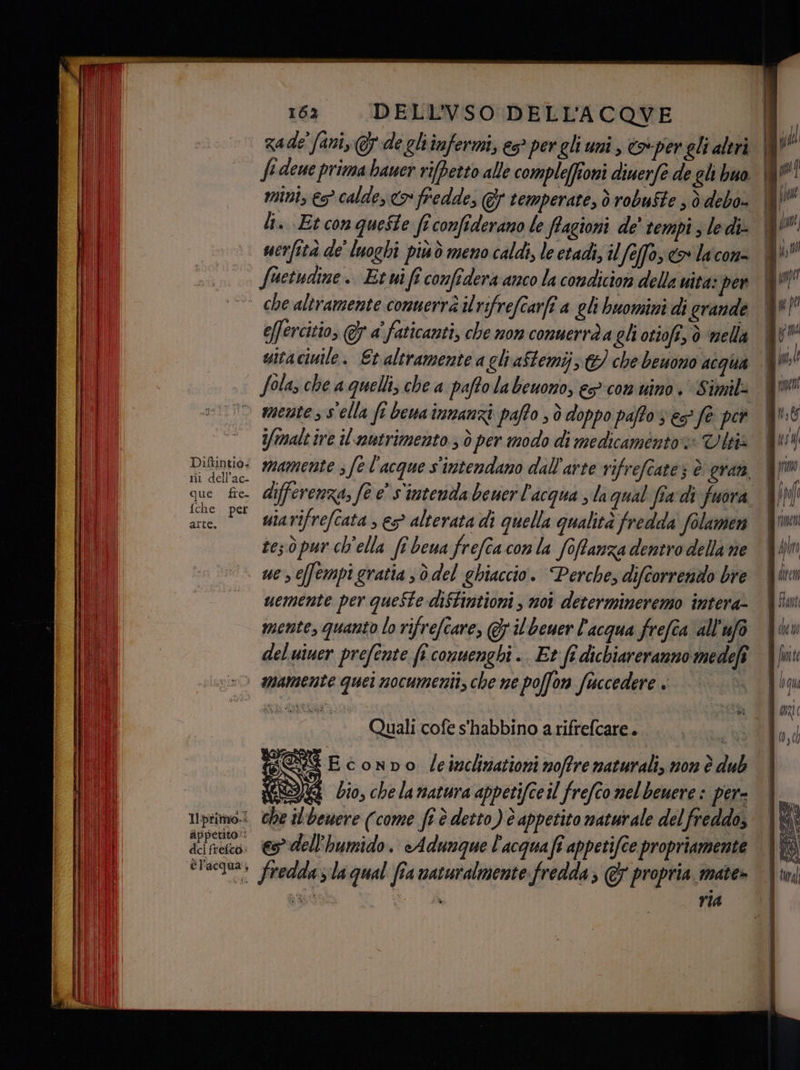 162 DELL'VSO DELL'ACQVE
za de' sani, & de gli infermi, et per gli uni, & per gli altri
si deue prima hauer rispetto alle complessioni diuerse de gli huo
mini, et calde, & fredde, & temperate, ò robuste, ò debo-
li. Et con queste si considerano le stagioni de' tempi, le di-
uersità de' luoghi più ò meno caldi, le etadi, il sesso, & la con-
suetudine. Et ui si considera anco la condicion della uita: per
che altramente conuerrà il rifrescarsi a gli huomini di grande
essercitio, & a' faticanti, che non conuerrà a gli otiosi, ò nella
uita ciuile. Et altramente a gli astemij, & che beuono acqua
sola, che a quelli, che a pasto la beuono, et con uino. Simil-
mente, s'ella si beua innanzi pasto, ò doppo pasto; et se per
ismaltire il nutrimento, ò per modo di medicamento: Vlti-
Distintio-
ni dell'ac-
que fre-
sche per
arte.
mamente, se l'acque s'intendano dall'arte rifrescate; è gran
differenza, se e' s'intenda beuer l'acqua, la qual sia di fuora
uia rifrescata, et alterata di quella qualità fredda solamen
te; ò pur ch'ella si beua fresca con la sostanza dentro della ne
ue, essempi gratia, ò del ghiaccio. Perche, discorrendo bre
uemente per queste distintioni, noi determineremo intera-
mente, quanto lo rifrescare, & il beuer l'acqua fresca all'uso
del uiuer presente si conuenghi. Et si dichiareranno medesi
mamente quei nocumenti, che ne posson succedere.
Quali cose s'habbino a rifrescare.
SECONDO le inclinationi nostre naturali, non è dub
bio, che la natura appetisce il fresco nel beuere: per-
Il primo
appetito
del fresco
è l'acqua;
che il beuere (come si è detto) è appetito naturale del freddo,
et dell'humido. Adunque l'acqua si appetisce propriamente
fredda, la qual sia naturalmente fredda, & propria mate-
ria